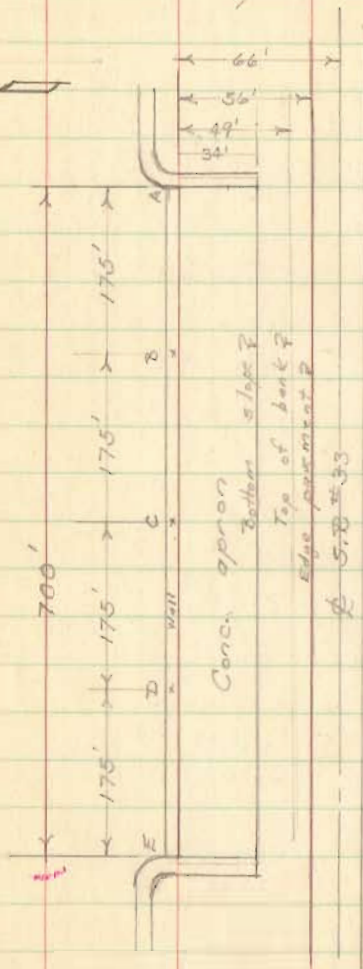 66'
56'
49'
34'
A
175'
B
175'
C
175'
D
175'
E
700'
Wall
Conc. apron
Bottom slope
Top of bank
Edge pavement
℄ S.R. #33